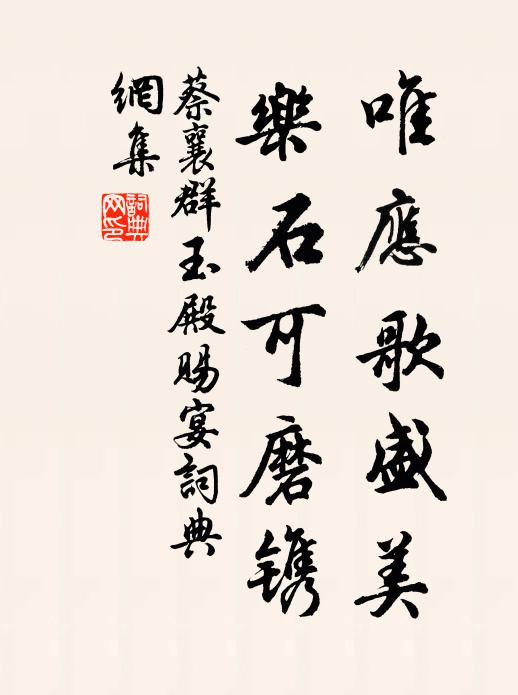 唯應歌盛美
樂石可磨鐫
蔡襄群玉殿賜宴詞典
網集
詞典網印